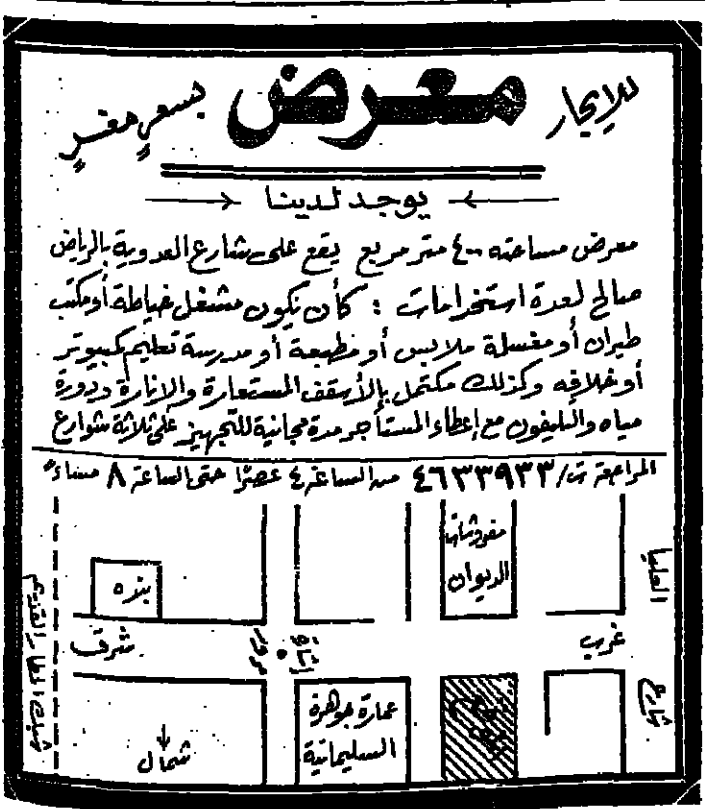 للإيجار
معرض
بسعر مغرٍ
يوجد لدينا
معرض مساحته ٤٠٠ متر مربع يقع على شارع العروبة بالرياض
صالح لعدة استخدامات : كأن يكون مشغل خياطة أو مكتب
طيران أو مغسلة ملابس أو مطبعة أو مدرسة تعليم كمبيوتر
أو خلافه وكذلك مكتمل بالأسقف المستعارة والإنارة ودورة
مياه والتليفون مع إعطاء المستأجر مدة مجانية للتجهيز على ثلاثة شوارع
المراجعة ت/ ٤٦٣٣٩٣٣ من الساعة ٤ عصرًا حتى الساعة ٨ مساءً
مفروشات
الديوان
العليا
بنده
شبك المطار القديم
شرق
إشارة
مرور
غرب
شارع
عمارة جوهرة
السليمانية
شمال